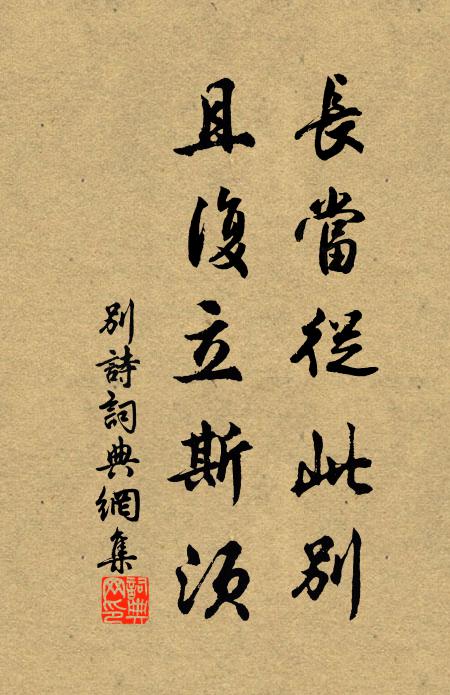 長當從此別
且復立斯須
別詩詞典網集
詞典
网印